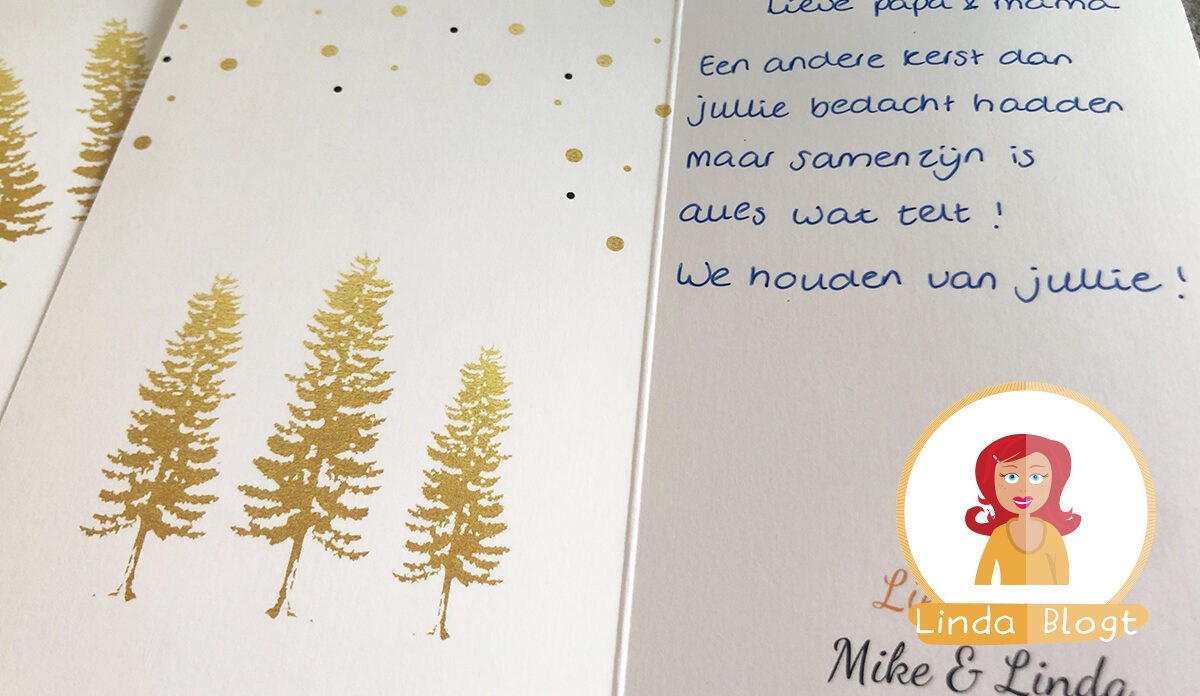 Lieve papa & mama
Een andere kerst dan
jullie bedacht hadden
maar samenzijn is
alles wat telt !
We houden van jullie !
Linda Blogt
Mike & Linda